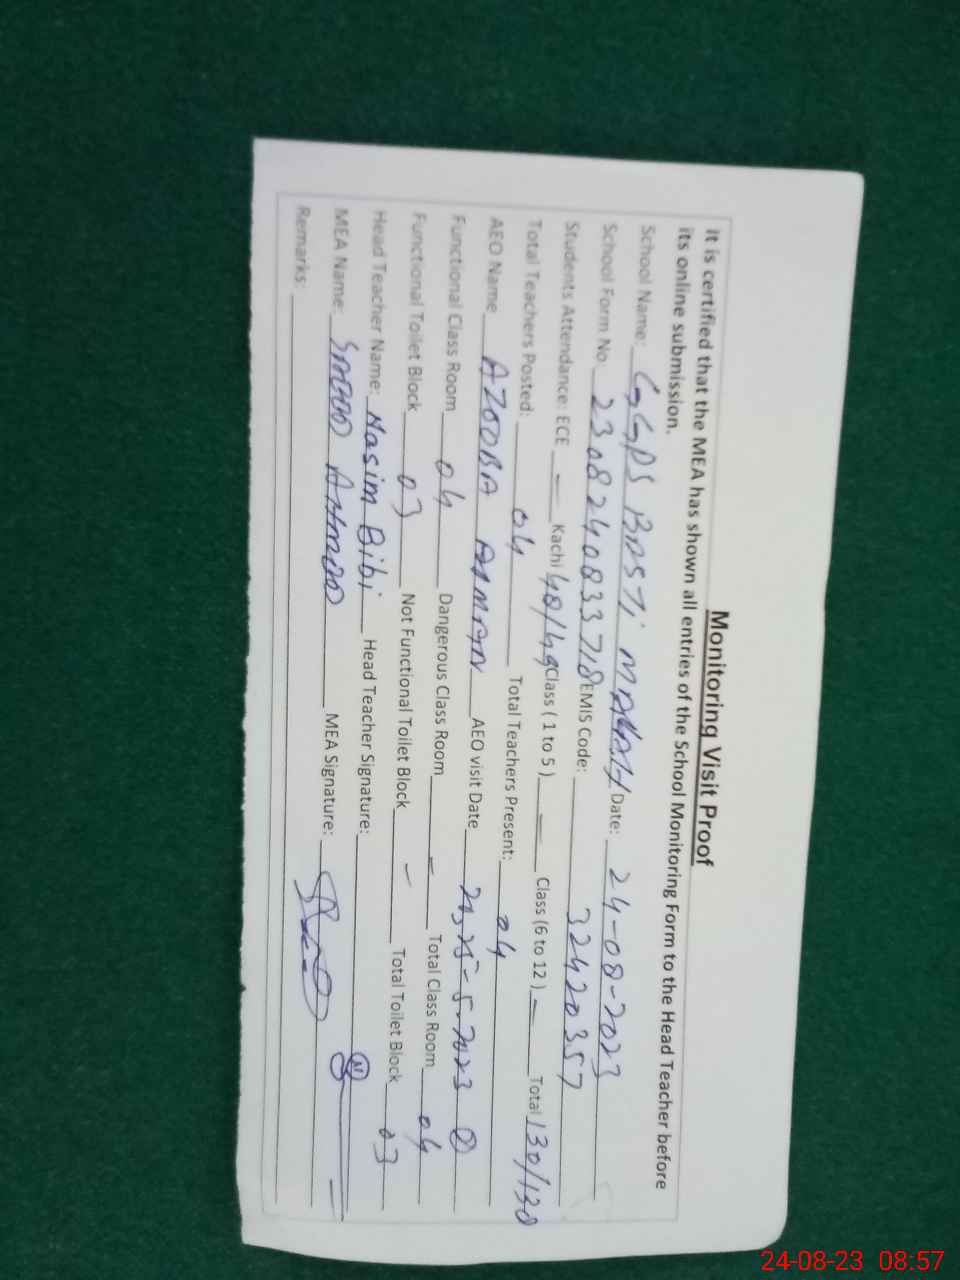 Monitoring Visit Proof
It is certified that the MEA has shown all entries of the School Monitoring Form to the Head Teacher before
its online submission.
School Name: GGPS BASTI Date: 24-08-2023
School Form No. 2308240833718 EMIS Code: 32420357
Students Attendance: ECE — Kachi Class ( 1 to 5 ) — Class (6 to 12 ) — Total 130/130
Total Teachers Posted: 04 Total Teachers Present: 04
AEO Name AZOOBA AEO visit Date 25-5-2023 2
Functional Class Room 04 Dangerous Class Room — Total Class Room 04
Functional Toilet Block 03 Not Functional Toilet Block — Total Toilet Block 03
Head Teacher Name: Nasim Bibi Head Teacher Signature:
MEA Name: AHMAD MEA Signature:
Remarks:
24-08-23 08:57